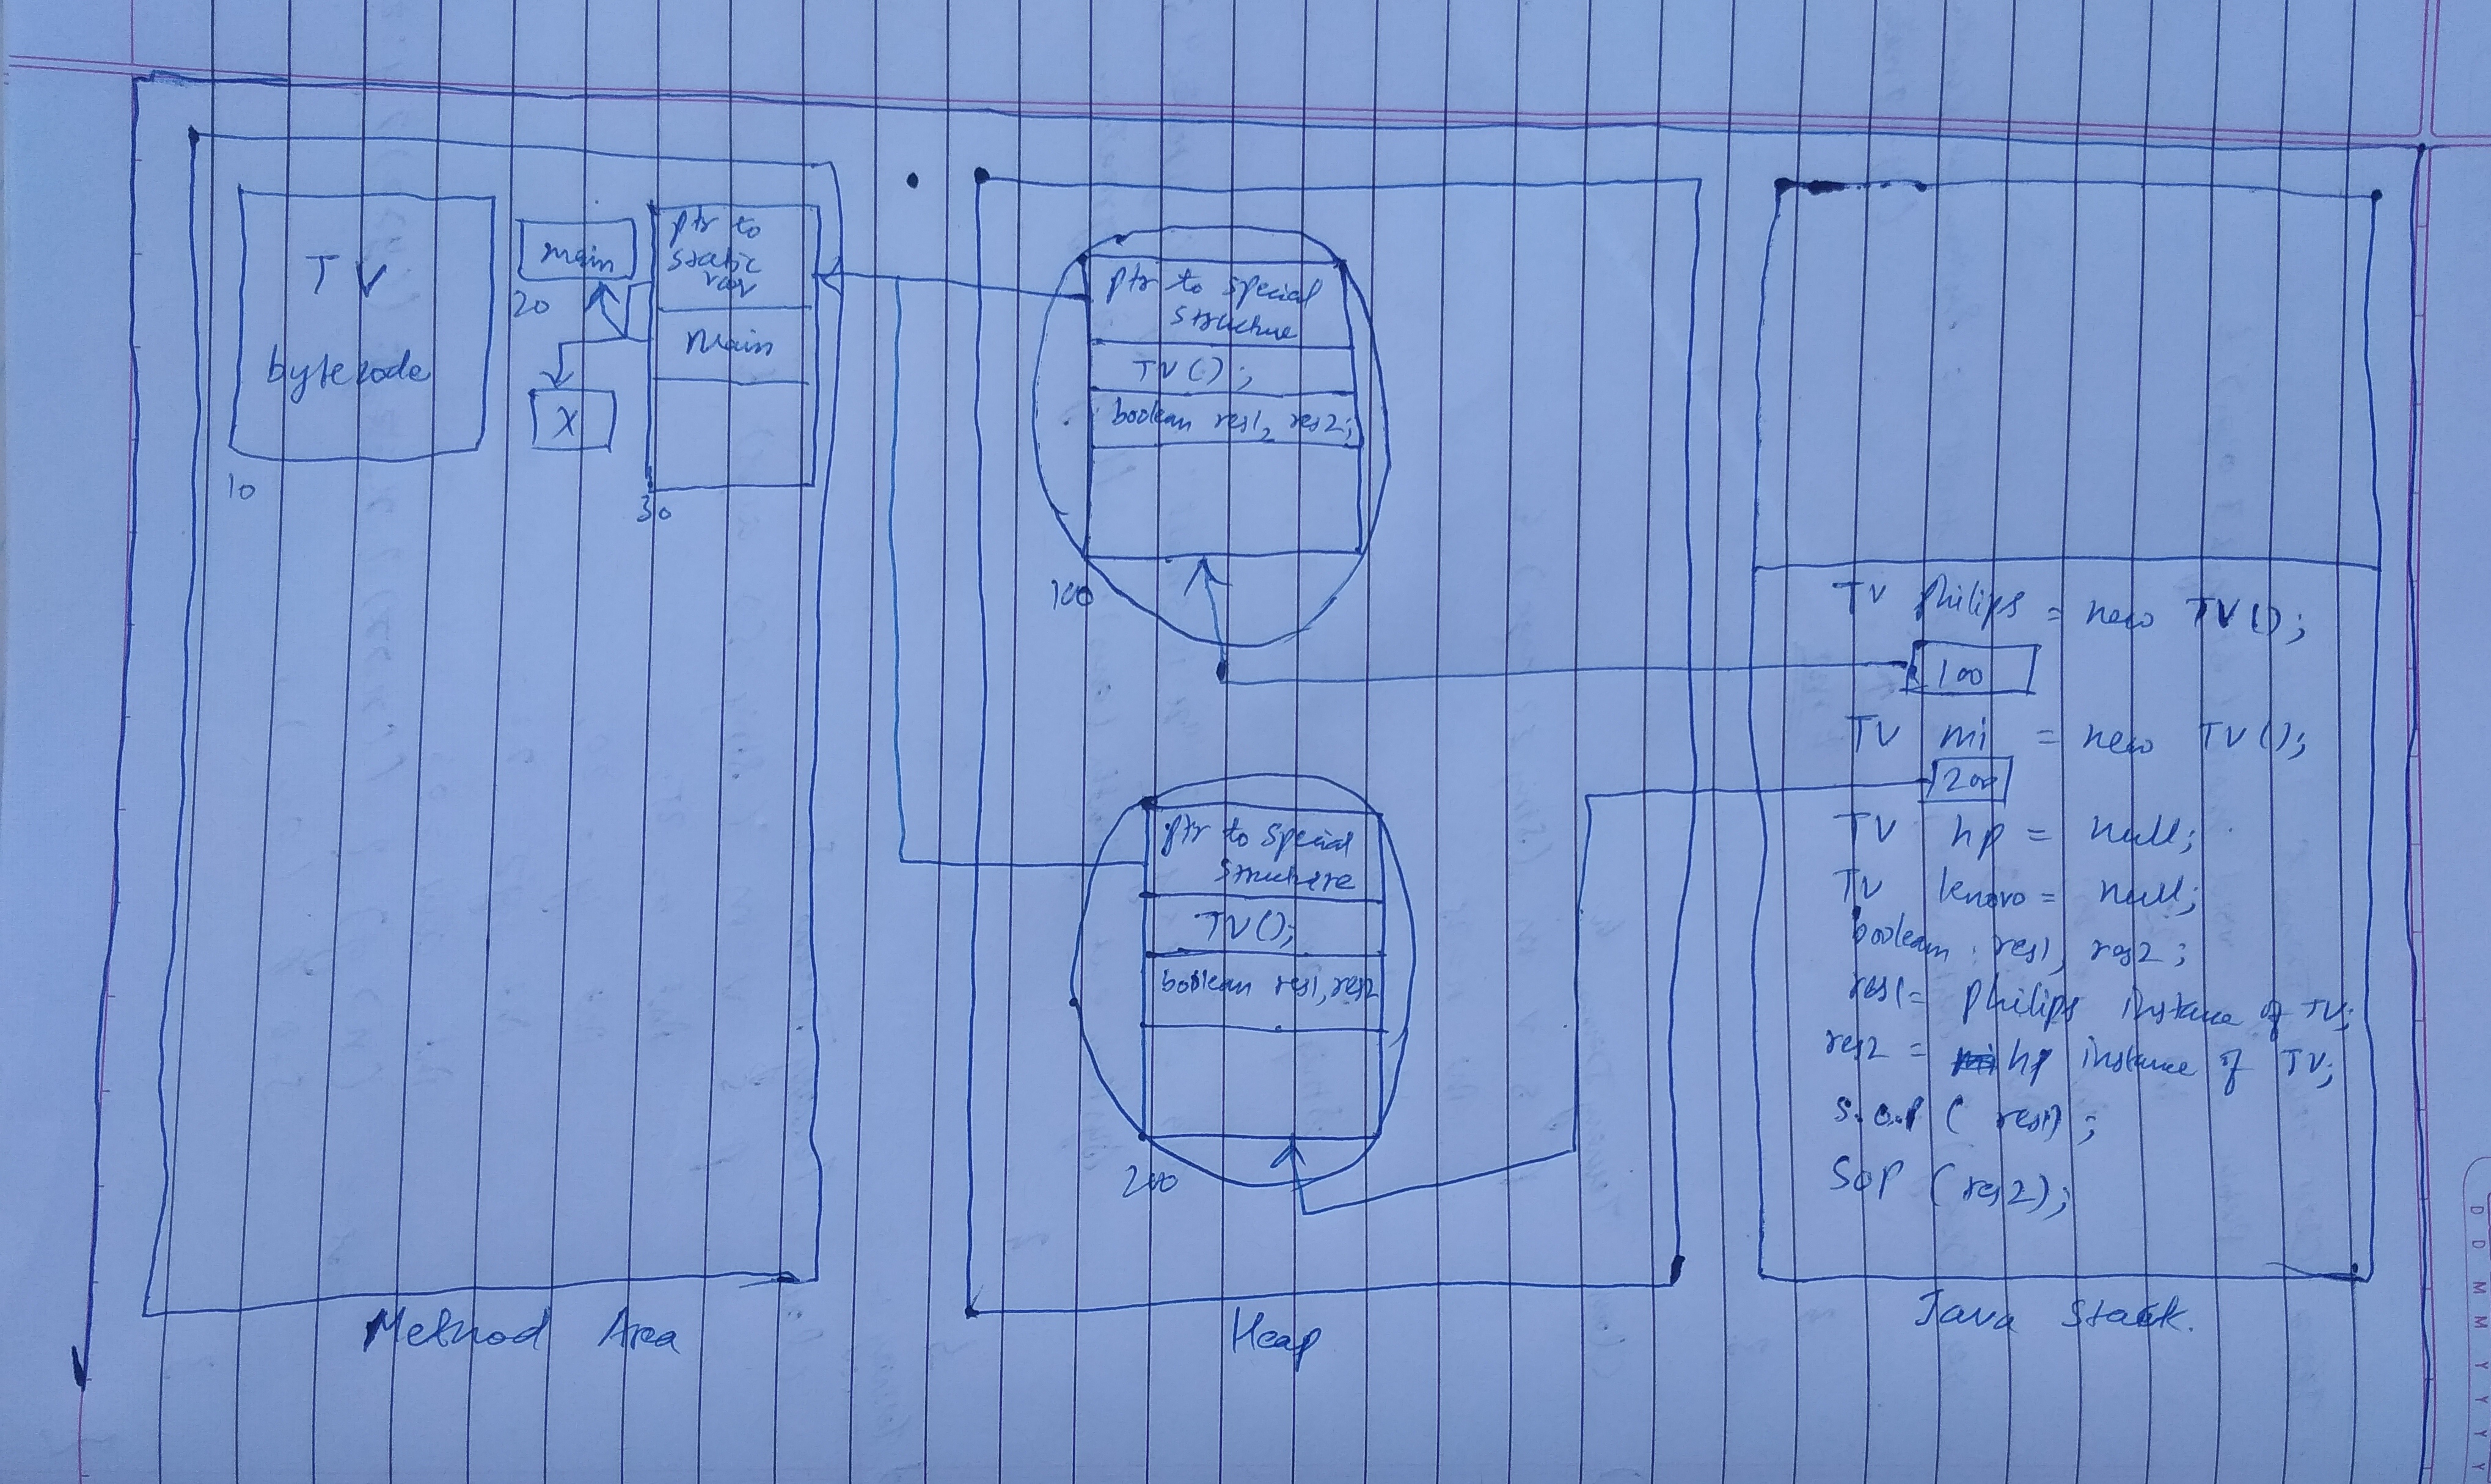 TV
bytecode
10
main
20
X
ptr to
static
var
main
30
ptr to special
structure
TV();
boolean res1, res2;
100
ptr to special
structure
TV();
boolean res1, res2
200
TV philips = new TV();
100
TV mi = new TV();
200
TV hp = null;
TV = null;
boolean res1, res2;
res1= philips instance of TV;
res2 = hp instance of TV;
S.o.p ( res1);
SOP (res2);
Method Area
Heap
Java Stack.
D D M M Y Y Y Y